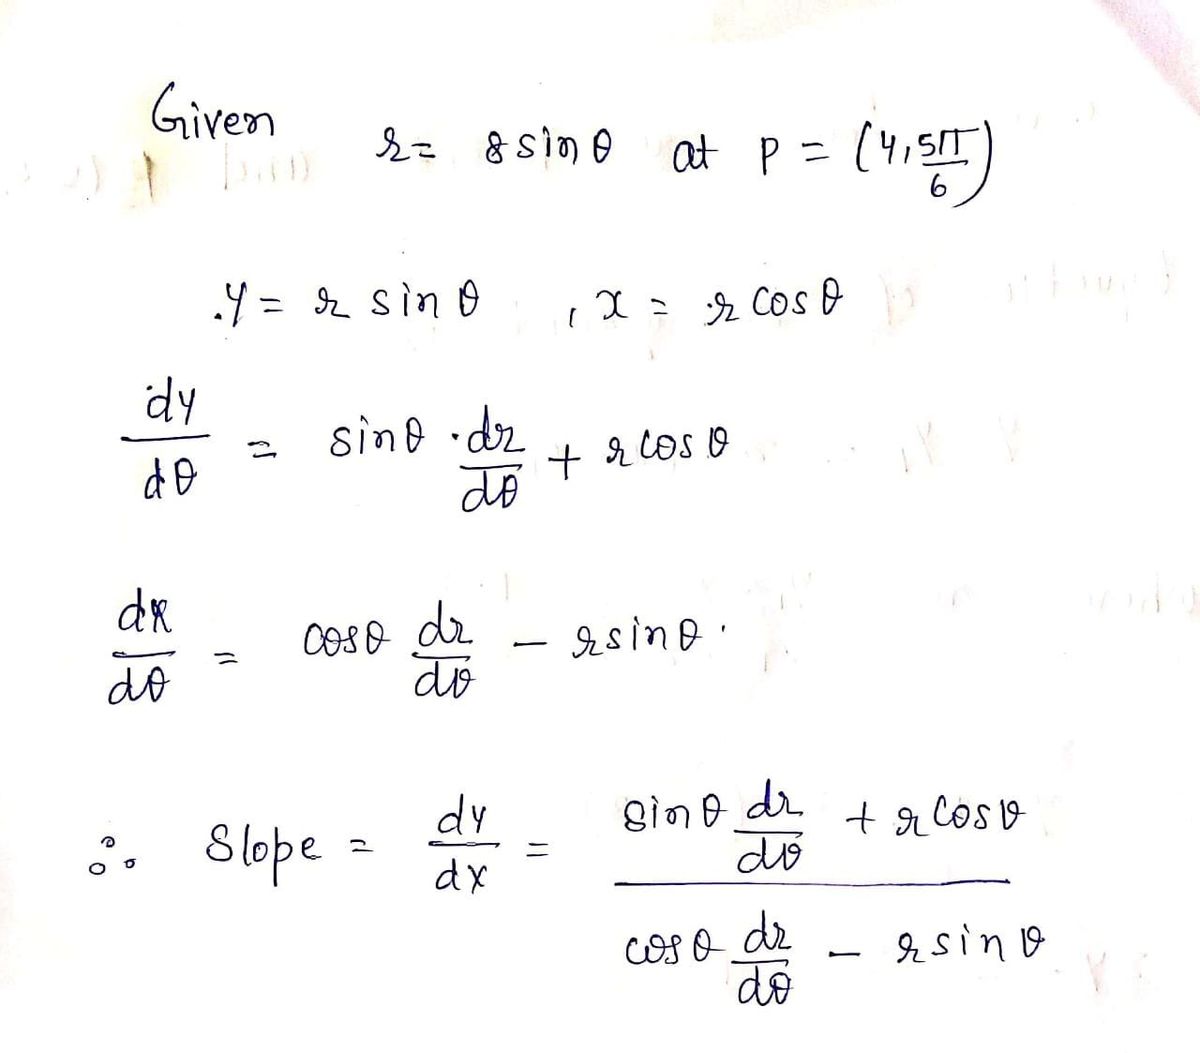 Given r = 8 sin θ at P = (4, 5π/6)
y = r sin θ , x = r cos θ
dy/dθ = sin θ · dr/dθ + r cos θ
dx/dθ = cos θ dr/dθ − r sin θ.
∴ Slope = dy/dx = (sin θ dr/dθ + r cos θ)/(cos θ dr/dθ − r sin θ)